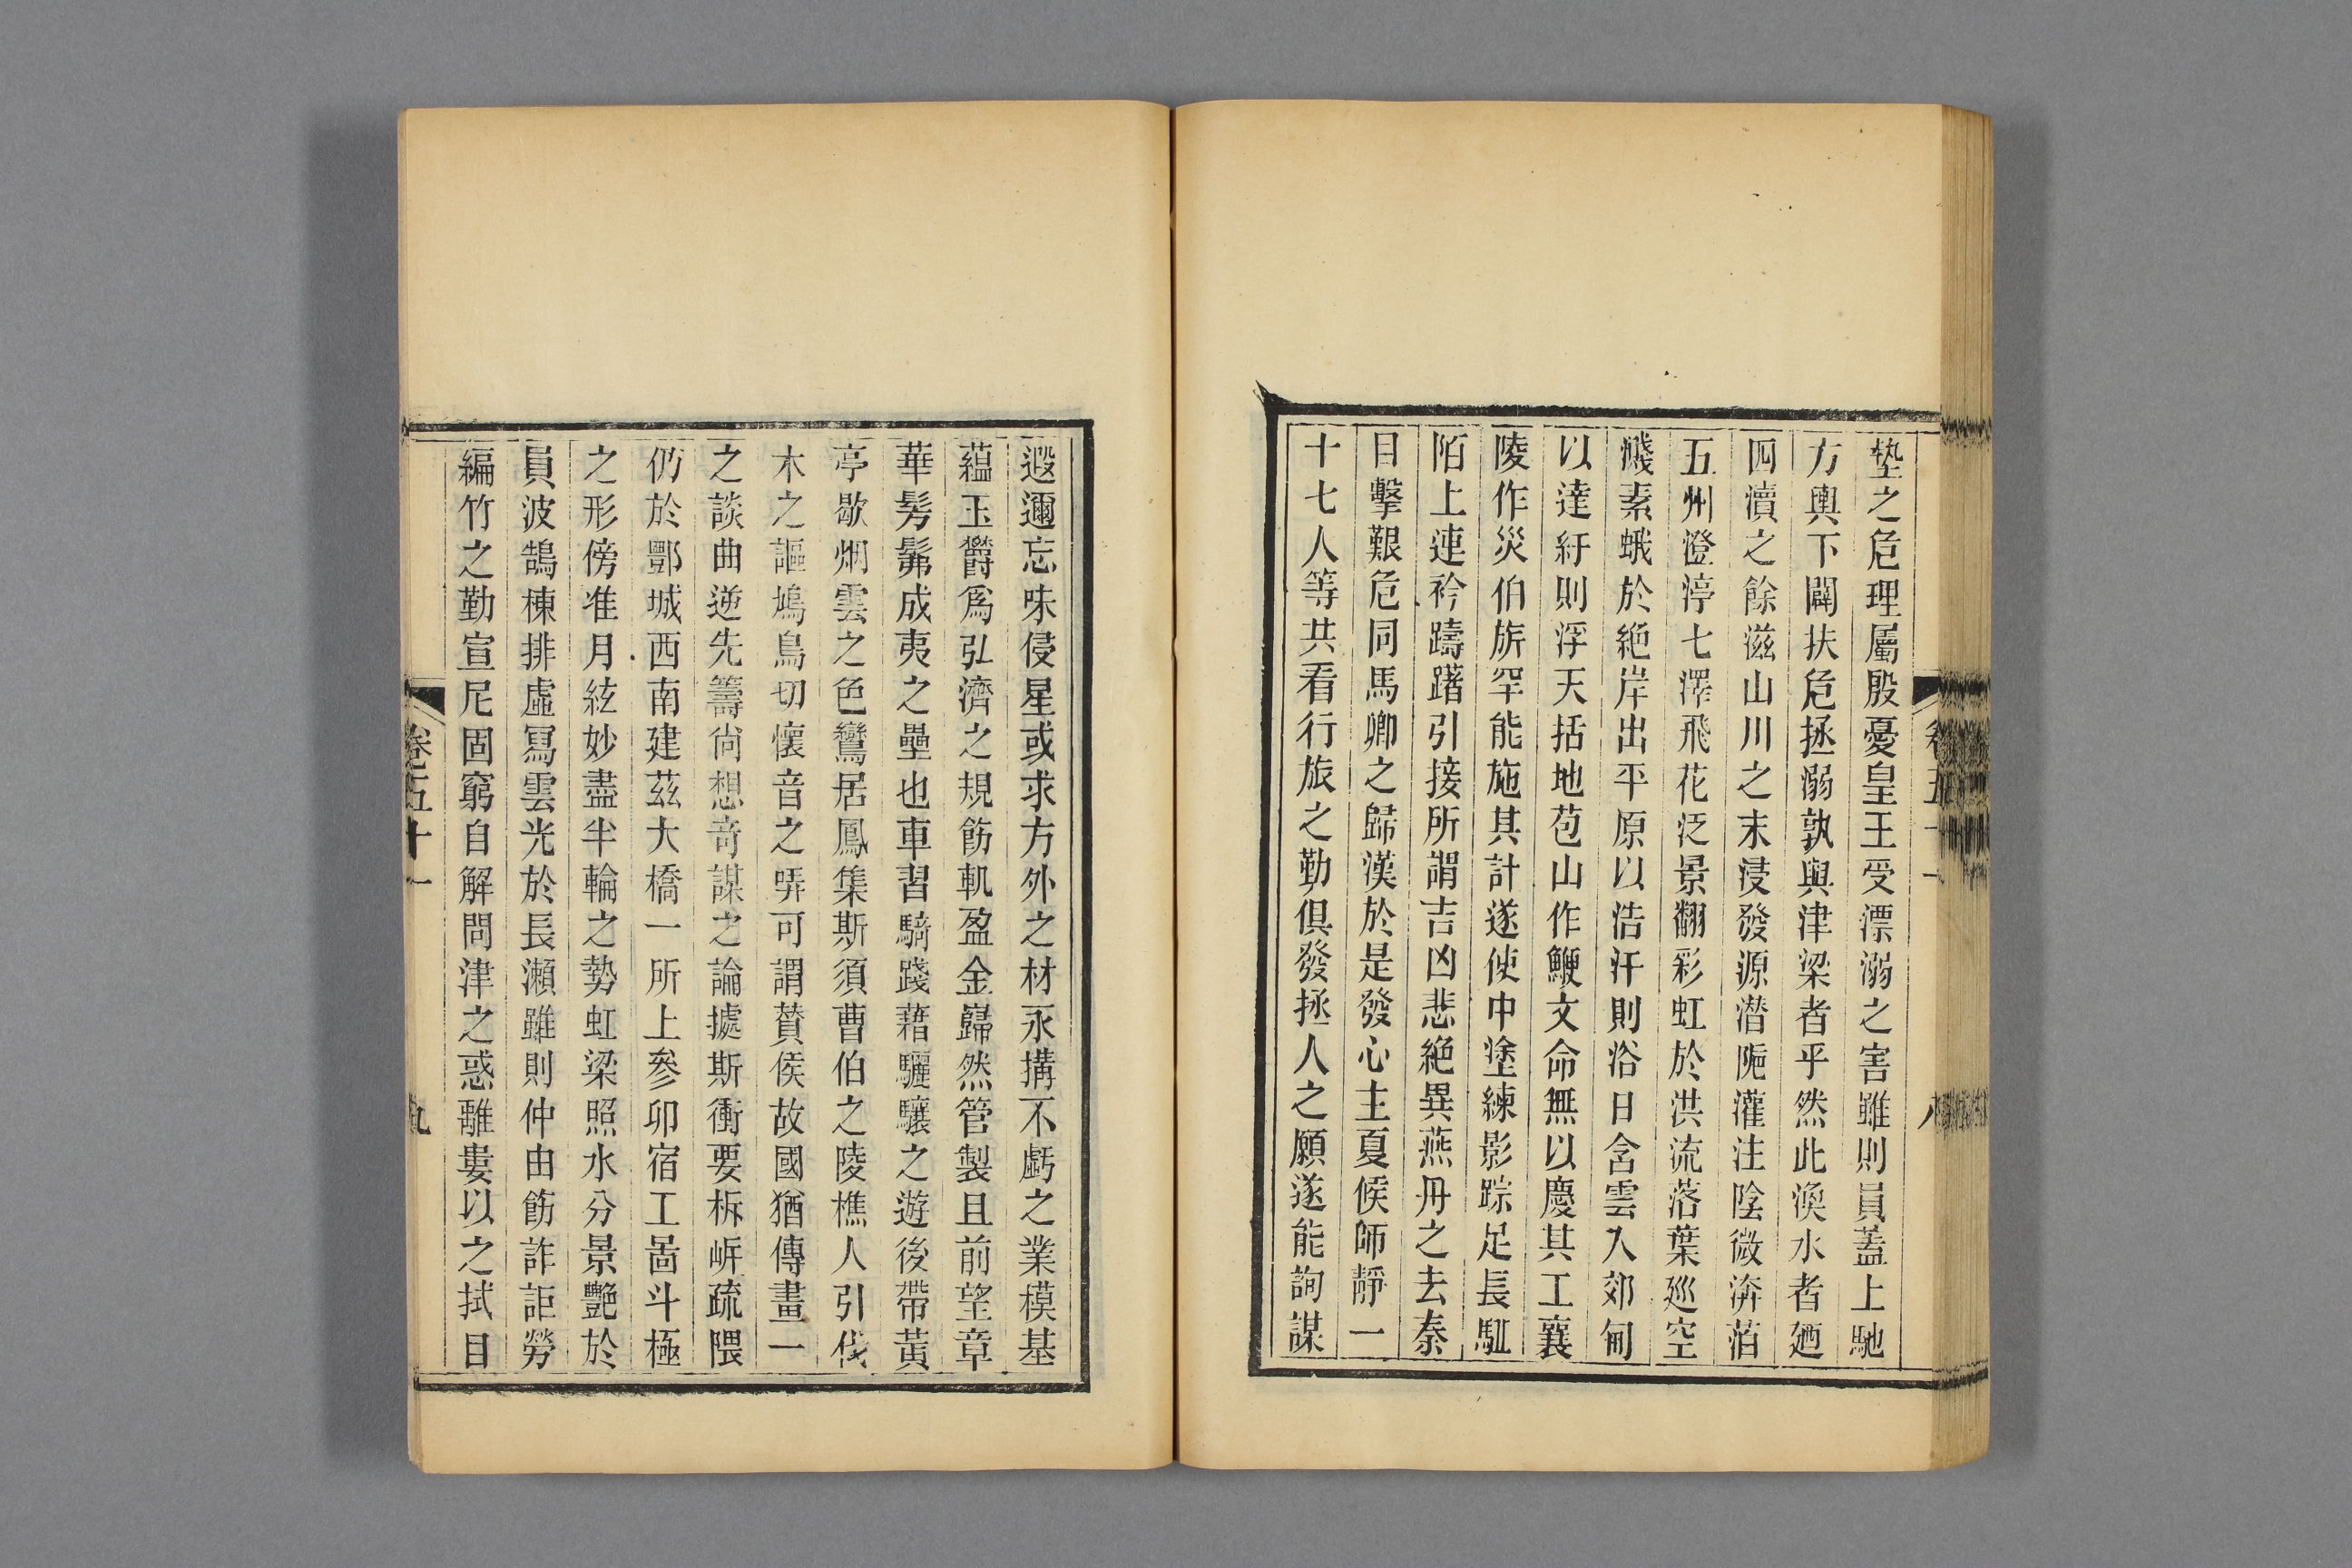 墊之危理屬殷憂皇王受漂溺之害雖則員蓋上馳
方輿下闢扶危拯溺孰與津梁者乎然此渙水者廼
四瀆之餘滋山川之末浸發源潜陁灌注陰微渀萡
五州澄渟七澤飛花泛景翻彩虹於洪流落葉巡空
濺素蛾於絶岸出平原以浩汗則浴日含雲入郊甸
以達紆則浮天括地苞山作鯾文命無以慶其工襄
陵作災伯旂罕能施其計遂使中塗練影踪足長駈
陌上連衿躊躇引接所謂吉凶悲絶異燕丹之去秦
目擊艱危同馬卿之歸漢於是發心主夏侯師靜一
十七人等共看行旅之勤俱發拯人之願遂能詢謀
卷五十一
八
遐邇忘味侵星或求方外之材永搆不虧之業模基
蘊玉欝爲弘濟之規飭軌盈金巋然管製且前望章
華髣髴成夷之壘也車習騎踐藉驪驤之遊後帶黄
亭歇烟雲之色鸞居鳳集斯須曹伯之陵樵人引伐
木之謳鳩鳥切懷音之哢可謂贊侯故國猶傳畫一
之談曲逆先籌尙想竒謀之論據斯衝要柝㟁疏隈
仍於酆城西南建茲大橋一所上參卯宿工啚斗極
之形傍准月絃妙盡半輪之勢虹梁照水分景艷於
員波鵠棟排虛冩雲光於長瀨雖則仲由飭詐詎勞
編竹之勤宣尼固窮自解問津之惑離婁以之拭目
卷五十一
九